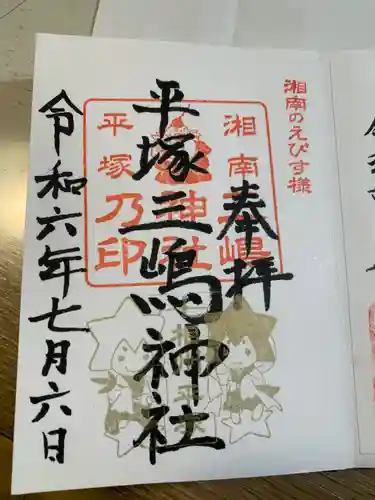 湘南のえびす様
奉拝
平塚三嶋神社
令和六年七月六日
湘南
三嶋
神社
平塚
乃印